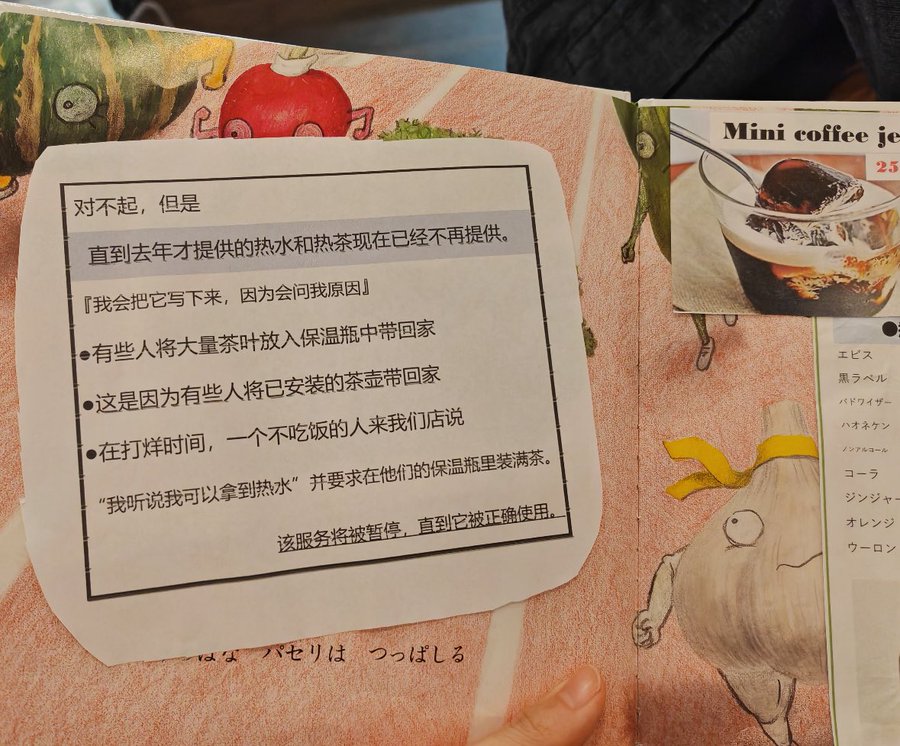 对不起，但是
直到去年才提供的热水和热茶现在已经不再提供。
『我会把它写下来，因为会问我原因』
●有些人将大量茶叶放入保温瓶中带回家
●这是因为有些人将已安装的茶壶带回家
●在打烊时间，一个不吃饭的人来我们店说
“我听说我可以拿到热水”并要求在他们的保温瓶里装满茶。
该服务将被暂停，直到它被正确使用。
パセリは つっぱしる
Mini coffee je
25
エビス
黒ラベル
バドワイザー
ハオネケン
ノンアルコール
コーラ
ジンジャー
オレンジ
ウーロン